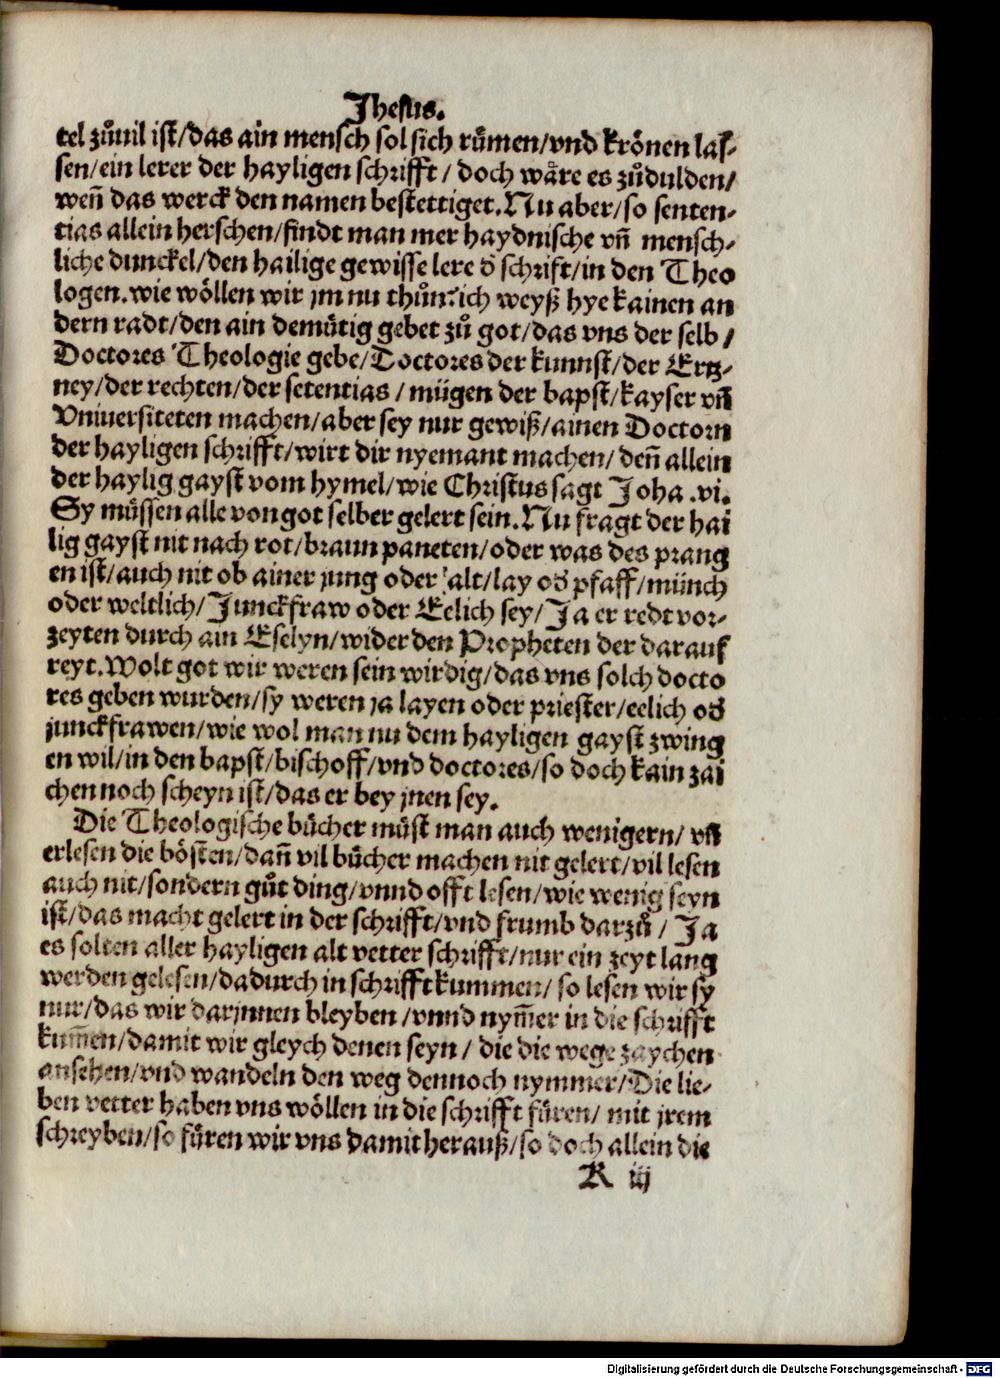 Jhesus.
tel zůuil ist/das ain mensch sol sich rümen/vnd krönen las-
sen/ein lerer der hayligen schrifft/ doch wäre es zůdulden/
weñ das werck den namen bestettiget. Nu aber/so senten-
tias allein herschen/findt man mer haydnische vñ mensch-
liche dunckel/den hailige gewisse lere d̕ schrift/in den Theo
logen. wie wöllen wir jm nu thůn? ich weyß hye kainen an
dern radt/den ain demütig gebet zů got/das vns der selb/
Doctores Theologie gebe/Doctores der kunnst/der Ertz-
ney/der rechten/der setentias/mügen der bapst/kayser vñ
Vniuersiteten machen/aber sey nur gewiß/ainen Doctorn
der hayligen schrifft/wirt dir nyemant machen/deñ allein
der haylig gayst vom hymel/wie Christus sagt Joha .vi.
Sy müssen alle von got selber gelert sein. Nu fragt der hai
lig gayst nit nach rot/braun paneten/oder was des prang
en ist/auch nit ob ainer jung oder alt/lay od̕ pfaff/münch
oder weltlich/Junckfraw oder Eelich sey/Ja er redt vor-
zeyten durch ain Eselyn/wider den Propheten der darauf
reyt. Wolt got wir weren sein wirdig/das vns solch docto
res geben wurden/sy weren ja layen oder priester/eelich od̕
junckfrawen/wie wol man nu dem hayligen gayst zwing
en wil/in den bapst/bischoff/vnd doctores/so doch kain zai
chen noch scheyn ist/das er bey jnen sey.
Die Theologische bücher müst man auch wenigern/ vñ
erlesen die bösten/dañ vil bücher machen nit gelert/vil lesen
auch nit/sondern gůt ding/vnnd offt lesen/wie wenig seyn
ist/das macht gelert in der schrifft/vnd frumb darzů/ Ja
es solten aller hayligen alt vetter schrifft/nur ein zeyt lang
werden gelesen/dadurch in schrifft kummen/ so lesen wir sy
nur/das wir darjnnen bleyben/vnnd nym̃er in die schrifft
kum̃en/damit wir gleych denen seyn/ die die wege zaychen
ansehen/vnd wandeln den weg dennoch nymmer/Die lie-
ben vetter haben vns wöllen in die schrifft füren/ mit jrem
schreyben/so füren wir vns damit herauß/so doch allein die
K iij
Digitalisierung gefördert durch die Deutsche Forschungsgemeinschaft - DFG